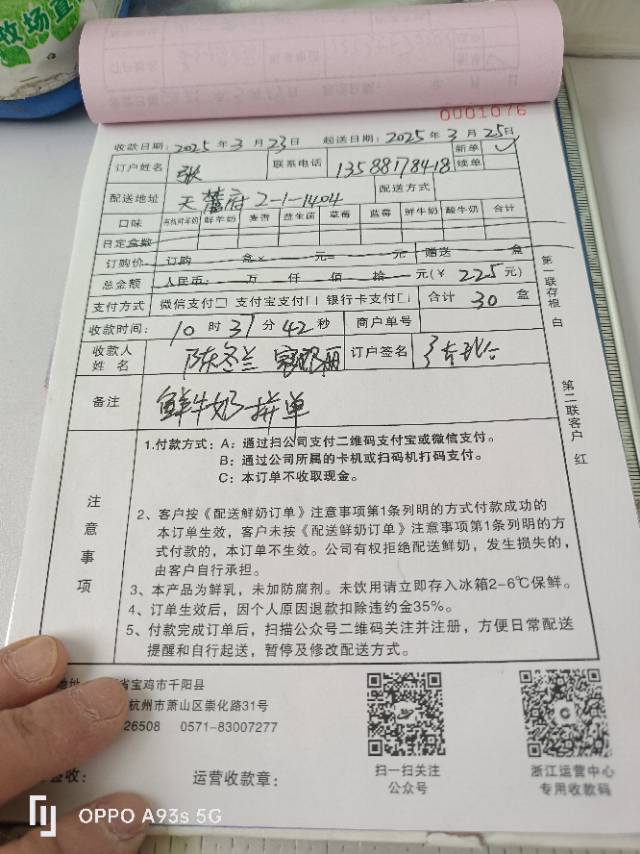 牧场直
0001076
收款日期: 2025 年 3 月 23 日 起送日期: 2025 年 3 月 25 日
订户姓名 张 联系电话 13588178418 新单 ✓ 续单
配送地址 天麓府 2-1-1404 配送方式
口味 有机鲜羊奶 鲜羊奶 麦香 益生菌 草莓 蓝莓 鲜牛奶 酸牛奶 合计
日定盒数
订购价 订购 盒× 元= 元 赠送 盒
总金额 人民币: 万 仟 佰 拾 元(¥ 225 元)
支付方式 微信支付□ 支付宝支付□ 银行卡支付□ 合计 30 盒
收款时间: 10 时 37 分 42 秒 商户单号
收款人姓名 陈冬兰 订户签名
备注 鲜牛奶拼单
第一联存根 白
第二联客户 红
注意事项
1.付款方式: A: 通过扫公司支付二维码支付宝或微信支付。
B: 通过公司所属的卡机或扫码机打码支付。
C: 本订单不收取现金。
2、客户按《配送鲜奶订单》注意事项第1条列明的方式付款成功的
本订单生效,客户未按《配送鲜奶订单》注意事项第1条列明的方
式付款的,本订单不生效。公司有权拒绝配送鲜奶,发生损失的,
由客户自行承担。
3、本产品为鲜乳,未加防腐剂。未饮用请立即存入冰箱2-6℃保鲜。
4、订单生效后,因个人原因退款扣除违约金35%。
5、付款完成订单后,扫描公众号二维码关注并注册,方便日常配送
提醒和自行起送,暂停及修改配送方式。
省宝鸡市千阳县
杭州市萧山区崇化路31号
26508 0571-83007277
签收: 运营收款章:
扫一扫关注
公众号
浙江运营中心
专用收款码
OPPO A93s 5G